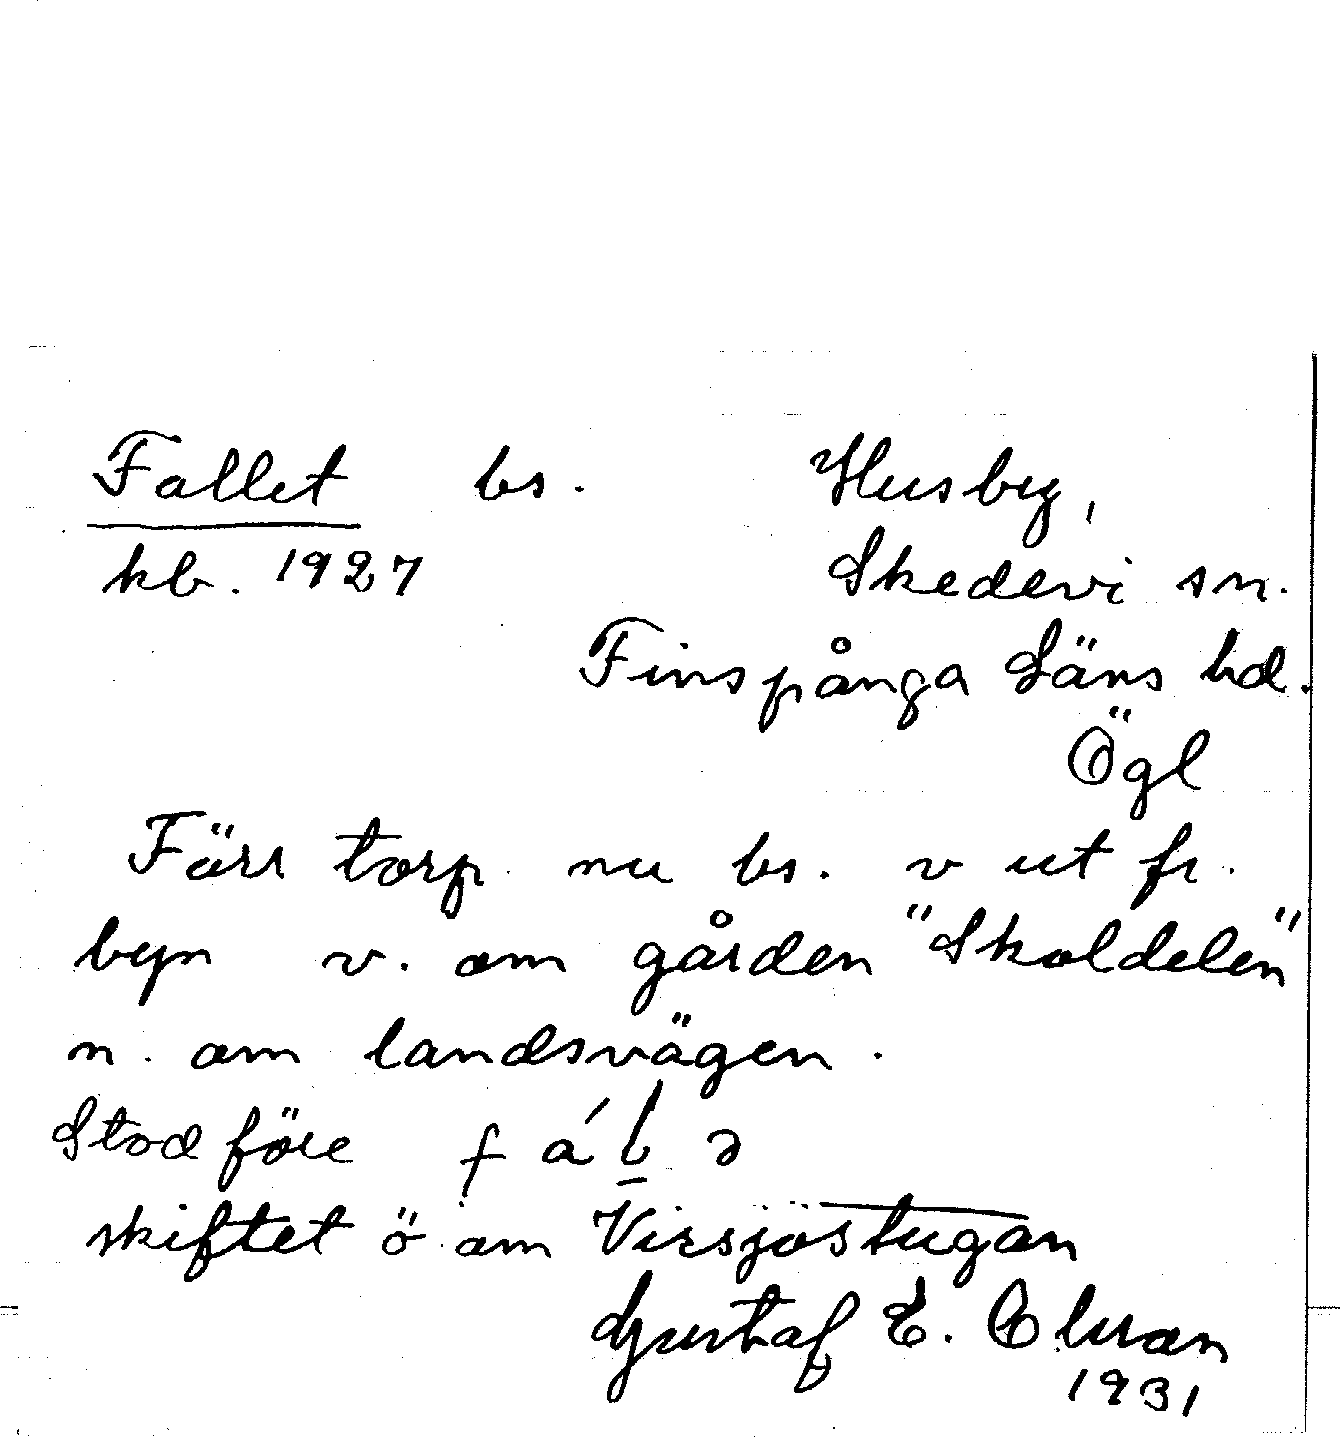 Fallet bs. Husby,
kb. 1927 Skedevi sn.
Finspånga Läns hd.
Ögl
Förr torp nu bs. v ut fr.
byn v. om gården "Skoldelen"
n. om landsvägen.
Stod före
skiftet ö om Virsjöstugan
Gustaf E.
1931